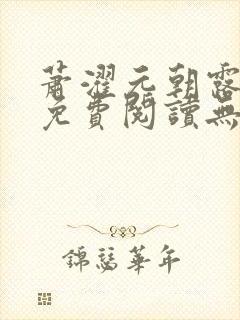 蕭濯元朝露
免費閱讀無
錦瑟華年